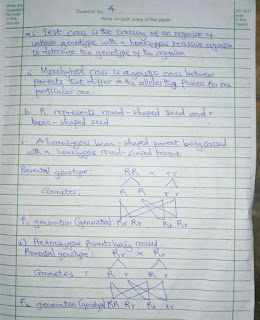 Question No. 4
Write on both sides of the paper
a i. Test cross is the crossing of an organism of
unknown genotype with a homozygous recessive organism
to determine the genotype of the organism
ii. Monohybrid cross is a genetic cross between
parents that differ in the alleles they possess for one
particular one.
b. R represents round-shaped seed and r
bean-shaped seed
i. A homozygous bean-shaped parent being crossed
with a homozygous round-shaped parent.
Parental genotype: RR × rr
Gametes: R R r r
F1 generation (generation): Rr Rr Rr Rr
ii) Heterozygous Parents being crossed
Parental genotype: Rr × Rr
Gametes: R r R r
F2 generation (genotype) RR Rr Rr rr